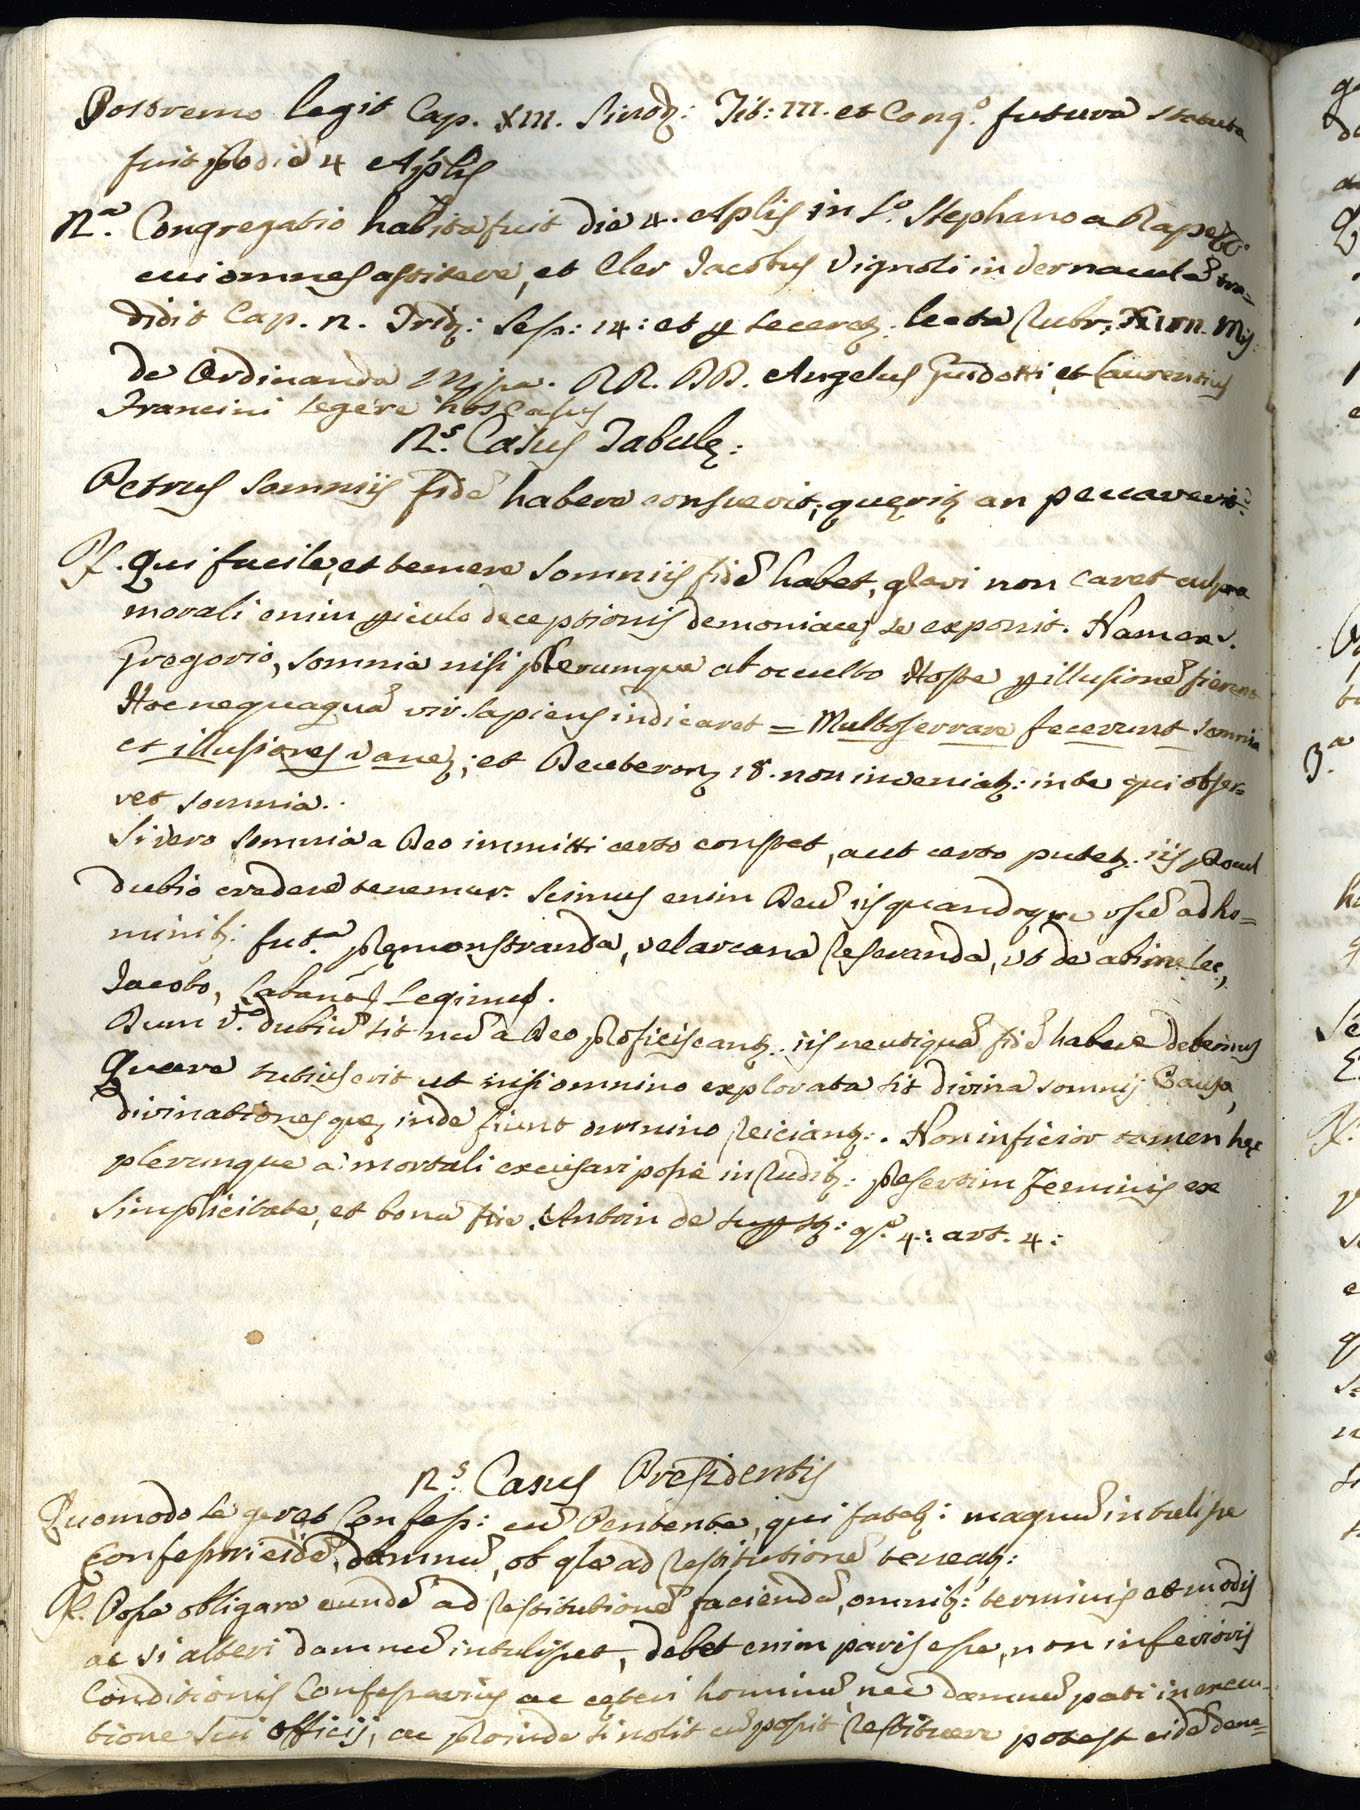 Postremo legit Cap. XIII. Sinod: Tit: III. et Cong.o futura statuta
fuit p die 4 Aplis
2.a Congregatio habita fuit die 4. Aplis in S.o Stephano a
cui omnes astitere, et Cler Jacobus Vignoli in vernaculã tra=
didit Cap. 2. Trid: Sess: 14: et lecta Rubr. XIIII. Mis:
de Ordinanda Missa. RR. DD. Angelus Guidotti, et Laurentius
Francini legere hos casus
2.s Casus Tabulę:
Petrus somniis fidẽ habere consuevit, querit an peccaverit.
R. Qui facile, et temere somniis fidẽ habet, gravi non caret culpa
morali enim piculo deceptionis demoniacę se exponit. Nam ex S.
Gregorio, somnia nisi plerumque ab occulto Hoste p illusionẽ fierent
Hoc nequaquã vir sapiens indicaret = Multos errare fecerunt somnia
et illusiones vanę; et Deuteron 18. non inveniat: in te qui obser=
vet somnia.
Si vero somnia a Deo immitti certo constet, aut certo putet. iis procul
dubio credere tenemur. Scimus enim Deũ iis quandoque usũ ad ho=
minib: fut.a premonstranda, vel arcana reseranda, ut de Abimelec,
Jacobo, Labano legimus.
Dum v.o dubiũ sit nũ a Deo proficiscant. iis neutiquã fidẽ habere debemus
Quare tutius erit ut nisi omnino explorata sit divina somnij Causa,
divinationes quę inde fiunt omnino reiciant: . Non inficior tamen hęc
plerunque a mortali excusari posse in rudib: presertim Feminis ex
simplicitate, et bona fide. Antoin de q. 4: art. 4:
2.s Casus Presidentis
Quomodo se geret Confess: cũ Penitente, qui fatet: magnũ intulisse
Confessori eidẽ damnũ, ob qle ad restitutionẽ teneat:
R. Posse obligare eundẽ ad restitutionẽ faciendã, omnib: terminis et modis
ac si alteri damnũ intulisset, debet enim paris esse, non inferioris
Conditionis Confessarius ac cęteri hominũ, nec damnũ pati in execu=
tione sui officij, ac proinde si nolit cũ possit restituere potest eidẽ dene=